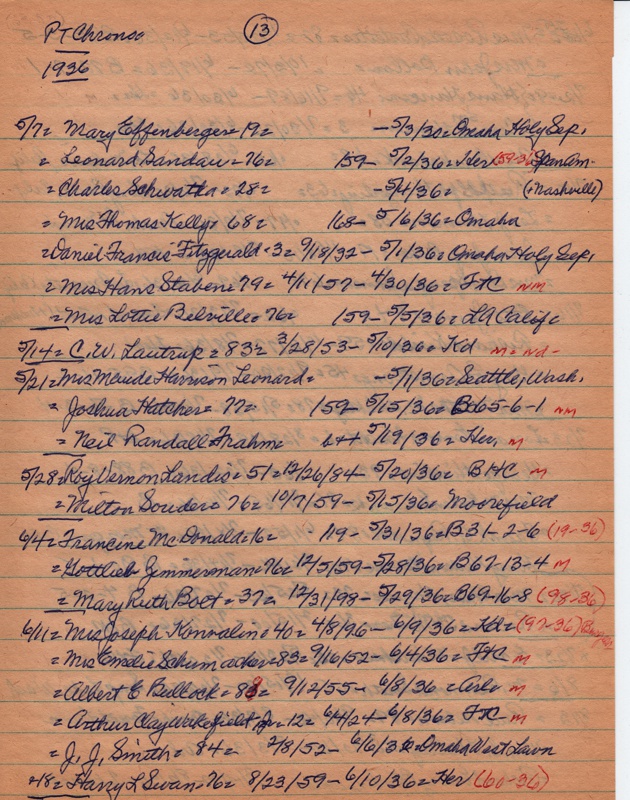 PT Chronos (13)
1936
5/7= Mary Effenberger= 19= -5/3/30= Omaha Holy Sep.
= Leonard Sandau= 76= 159- 5/2/36= Her (59-36) Span am-
= Charles Schwatka= 28= -5/4/36= (+Nashville)
= Mrs Thomas Kelly= 68= 168- 5/6/36= Omaha
= Daniel Francis Fitzgerald= 3= 9/18/32- 5/1/36= Omaha Holy Sep.
= Mrs Hans Staben= 79= 4/11/57- 4/30/36= FtC nm
= Mrs Lottie Belville= 76= 159- 5/5/36= LA Calif
5/14= C. W. Lautrup= 83= 3/28/53- 5/10/36= Kd m= nd-
5/21= Mrs Maude Harrison Leonard= -5/1/36= Seattle, Wash.
= Joshua Hatcher= 77= 159- 5/15/36= B65-6-1 nm
= Neil Randall Frahm= 5/19/36= Her, m
5/28= Roy Vernon Landis= 51= 12/26/84- 5/20/36= BHC m
= Milton Souder= 76= 10/7/59- 5/15/36= Moorefield
6/4= Francine McDonald= 16= 119- 5/31/36= B31-2-6 (19-36)
= Gottlieb Zimmerman= 76= 12/5/59- 5/28/36= B67-13-4 m
= Mary Ruth Bolt= 37= 12/31/98- 5/29/36= B69-16-8 (98-36)
6/11= Mrs Joseph Konvalin= 40= 4/8/96- 6/9/36= Kd= (97-36)
= Mrs Emelie Schumacher= 83= 9/16/52- 6/4/36= FtC m
= Albert E Bullock= 83= 9/12/55- 6/8/36= Arlo m
= Arthur Clay Wakefield Jr= 12= 6/4/24- 6/8/36= FtC- m
= J. J. Smith= 84= 2/8/52- 6/6/36= Omaha West Lawn
-18= Harry L Swan= 76= 8/23/59- 6/10/36= Her (60-36)